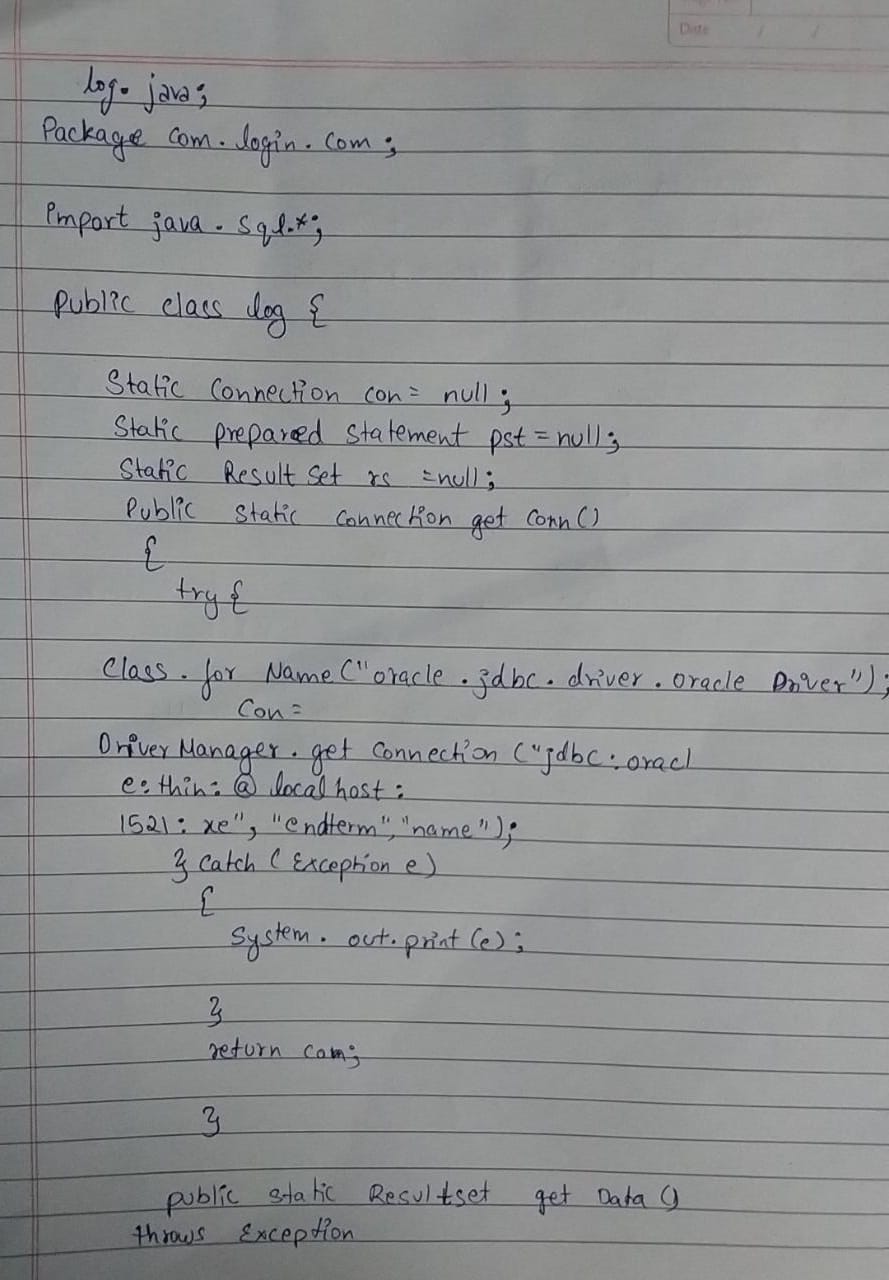 Date / /
log. java;
Package com. login. com;
Import java. sql.*;
Public class log {
Static Connection con = null;
Static prepared statement pst = null;
Static Result Set rs = null;
Public static connection get Conn ()
{
try {
Class. for Name ("oracle. jdbc. driver. oracle Driver");
Con =
Driver Manager. get Connection ("jdbc: oracl
e: thin: @ local host:
1521: xe", "endterm", "name");
} Catch ( Exception e)
{
System. out. print (e);
}
return com;
}
public static Resultset get Data ()
throws Exception